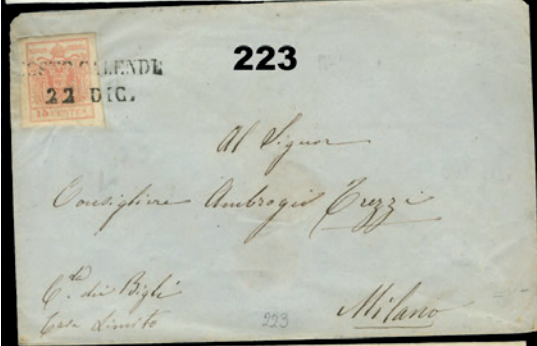 223
SESTO CALENDE
22 DIC.
15 CENTES
Al Signor
Consigliere Ambrogio Trezzi
C.da dei Bigli
Casa Limito
Milano
223